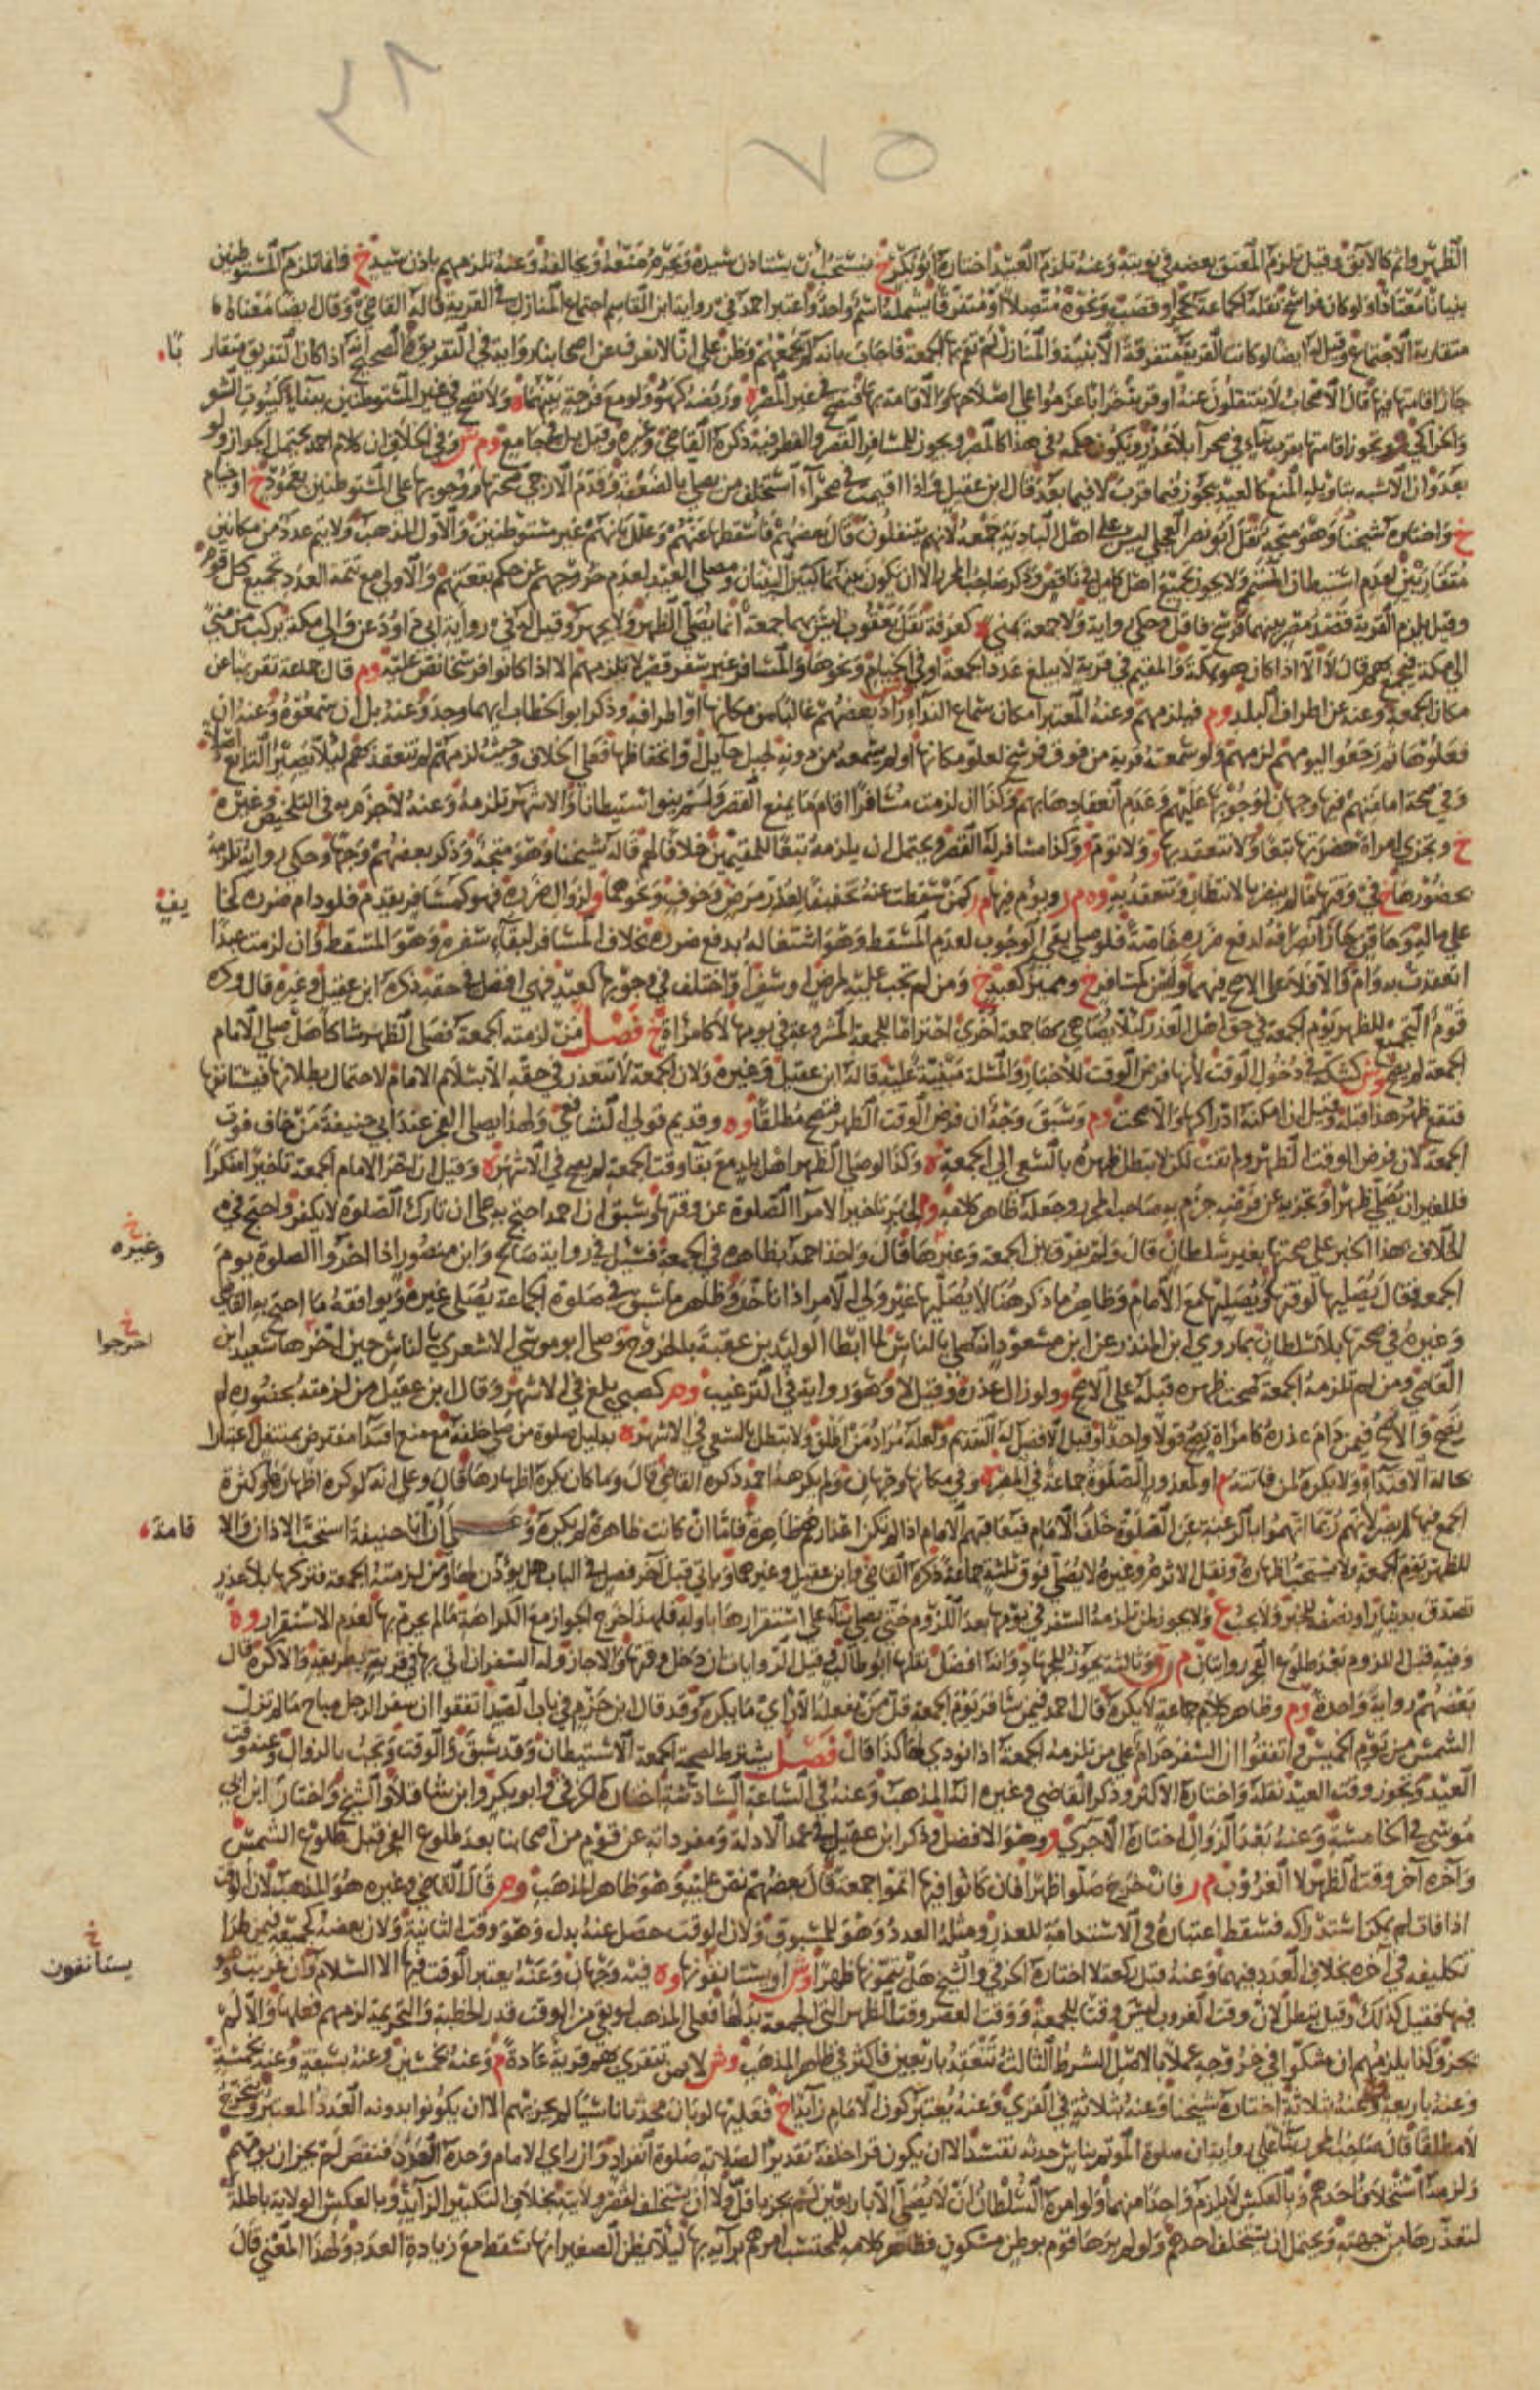 ٢٨
٧٥
الظهر واثم كالابق وقيل تلزم المعتق بعضه في نوبته وعنه تلزم العبد اختاره ابو بكر خ فيستحب ان يستاذن سيده وتحرم منعه ومخالفه وعنه تلزمهم باذن سيد خ فاما تلزم المستوطنين
بنيانا معتادا ولو كان فراسخ نقله الجماعة بحجر او قصب ونحوه متصلا او متفرقا يشمله اسم واحد واعتبر احمد في رواية ابن القاسم اجتماع المنازل في القرية قاله القاضي وقال ايضا معناه
متقاربة الاجتماع وقيل له ايضا لو كانت القرية متفرقة الابنية والمنازل تقوم بها الجمعة فاجاب بانه وظن على انا لا نعرف عن اصحابنا رواية في التفريق والصحيح انه اذا كان التفريق متقار
بًا
جاز اقامتها فيها قال الاصحاب لا ينتقلون عنه او قرية خرابا عزموا على اصلاحها والاقامة بها فتصح في غير المصر وربضه كهو ولو مع فرجة بينهما ولا تصح في غير المستوطنين ببناء كبيوت الشعر
والخراكي وتجوز اقامتها بقرب بناء في صحراء بلا عذر ويكون حكمه في هذا كالمصر ويجوز للمسافر القصر والفطر فيه ذكره القاضي وغيره وقيل بل في جامع وم ش وفي الخلاف ان كلام احمد يحتمل الجواز ولو
بعد وان الاشبه بتاويله المنع كالعيد يجوز فيما قرب لا فيما بعد قال ابن عقيل واذا اقيمت في صحراء استخلف من يصلي بالضعفة وقدم الازجي صحتها ووجوبها على المستوطنين بعمود خ او خيام
خ واختاره شيخنا وهو متجه نقل ابو نصر العجلي ليس على اهل البادية جمعة لانهم ينتقلون قال بعضهم فاسقطها عنهم وعلل بانهم غير مستوطنين والاول المذهب ولا يتم عدد من مكانين
متقاربين لعدم استيطان المتمم ولا يجوز تجميع اهل كامل في ناقص وذكر صاحب المحرر الا ان يكون بينهما كبين البنيان ومصلى العيد لعدم خروجهم عن حكم بقعتهم والاولى مع تتمة العدد تجميع كل قوم
وقيل يلزم القرية قصد مصر بينهما فرسخ فاقل وحكي رواية ولا جمعة بمنى كعرفة نقل يعقوب ليس بهما جمعة انما يصلى الظهر ولا يجهر وقيل له في رواية ابي داود عن والي مكة يركب من منى
الى مكة فيجمع بهم قال لا الا اذا كان هو بمكة والمقيم في قرية لا يبلغ عدد الجمعة او في الخيام ونحوها والمسافر غير سفر قصر لا تلزمهم الا اذا كانوا فرسخا نص عليه وم قال جماعة تقريبا عن
مكان الجمعة وعنه عن اطراف البلد وم فيلزمهم وعنه المعتبر امكان سماع النداء زاد بعضهم غالبا من مكانها او اطرافه وذكر ابو الخطاب ايهما وجد وعنه بل ان سمعوه وعنه ان
فعلوها ثم رجعوا اليوم لزمهم ولو سمعته قرية من فوق فرسخ لعلو مكانها او لم يسمعه من دونه لجبل حايل او انخفاظها فعلى الخلاف وحيث لزمتهم لم تنعقد بهم لئلا يصير التابع اصلا
وفي صحة امامتهم فيها وجهان لوجوبها عليهم وعدم انعقادها بهم وكذا ان لزمت مسافرا اقام ما يمنع القصر ولم ينو استيطانا والاشهر تلزمه وعنه لا جزم به في التلخيص وغيره
خ وتجزي امراة حضرتها تبعا ولا تنعقد بها ولا تؤم وكذا مسافر له القصر ويحتمل ان يلزمه تبعا للمقيمين خلافا لم قاله شيخنا وهو متجه وذكر بعضهم وجها وحكي رواية تلزمه
بحضورها في وقتها ما لم يتضرر بالانتظار وتنعقد به وه م ر ويؤم فيها كمن سقطت عنه تخفيفا لعذر مرض وخوف ونحوهما ولزوال ضرره فهو كمسافر يقدم فلو دام ضرره كخا
يفٍ
على ماله وحاقن جاز انصرافه لدفع ضرره خاصة فلو صلى بقي الوجوب لعدم المسقط وهو اشتغاله بدفع ضرره بخلاف المسافر لبقاء سفره وهو المسقط وان لزمت عبدا
انعقدت به وام والا فلا على الاصح فيهما والحق كمسافر خ ومميز كعبد خ ومن لم تجب عليه لمرض او سفر او اختلف في وجوبها كعبد فهي افضل في حقه ذكره ابن عقيل وغيره قال وكره
قوم التجميع للظهر يوم الجمعة في حق اهل العذر لئلا يضاهي بها جمعة اخرى احتراما للجمعة المشروعة في يومها لا كامراة خ فصل من لزمته الجمعة فصلى الظهر شاكا هل صلى الامام
الجمعة لم يصح وش كشكه في دخول الوقت لانها فرض الوقت للاخبار والمسئلة مبنية عليه قاله ابن عقيل وغيره ولان الجمعة لا تتعذر في حقه الا بسلام الامام لاحتمال بطلانها فيستانفها
فتقع ظهر هذا قبله وقيل ان امكنه ادراكها والا صحت وم وسبق وجه ان فرض الوقت الظهر فتصح مطلقا وه وقديم قولي الشافعي ولهذا يصلي الفجر عند ابي حنيفة من خاف فوت
الجمعة لان فرض الوقت الظهر ولم تفت لكن لا تبطل ظهره بالسعي الى الجمعة وكذا لو صلى الظهر اهل بلد مع بقا وقت الجمعة لم يصح في الاشهر وقيل ان اخر الامام الجمعة تاخيرا منكرا
فللغير ان يصلي ظهرا وتجزيه عن فرضه جزم به صاحب المحرر وجعله ظاهر كلامه تاخير الامرا الصلوة عن وقتها وسبق ان احمد احتج به على ان تارك الصلوة لا يكفر واحتج في
الخلاف بهذا الخبر على صحتها بغير سلطان قال ولم يفرق بين الجمعة وغيرها قال واخذ احمد بظاهره في الجمعة فسئل في رواية صالح وابن منصور اذا اخروا الصلوة يوم
خ وغيره
الجمعة فقال يصليها لوقتها ويصليها مع الامام وظاهر ما ذكر هنا لا يصليها غير ولي الامر اذا تاخر وظاهر ما سبق في صلوة الجماعة يصلي غيره ويوافقه ما احتج به القاضي
خ اخرجوا
وغيره في صحتها بلا سلطان بما روى ابن المنذر عن ابن مسعود انه صلى بالناس لما ابطا الوليد بن عقبة بالخروج وصلى ابو موسى الاشعري بالناس حين اخرها سعيد ابن
العاصي ومن لم تلزمه الجمعة صحت ظهره قبله على الاصح ولو زال عذره وقيل لا وهو رواية في الترغيب كصبي بلغ في الاشهر وقال ابن عقيل من لزمته بحضوره لم
يصح والاصح فيمن دام عذره كامراة يصح قولا واحدا وقيل الافضل له التقديم ولعله مراد من اطلق ولا تبطل بالسعي في الاشهر بدليل صلوة من صلى خلفه مع منع اقتدا مفترض بمتنفل اعتبارا
بحالة الاقتداء ولا يكره لمن فاتته او لمعذور الصلوة جماعة في المصر وفي مكانها وجهان ولم يكرهه احمد ذكره القاضي قال وما كان يكره اظهارها قال وعلى انه لو كره اظهاره وكثرة
الجمع فيها لم يضر لانهم ربما اتهموا بالرغبة عن الصلوة خلف الامام فيعاقبهم الامام اذا لم تكن اعذارهم ظاهرة فاما ان كانت ظاهرة لم يكره ان ابا حنيفة استحب الاذان والا
قامة
للظهر يوم الجمعة ولا يستحب اظهاره ونقل الاثرم وغيره لا يصلي فوق ثلثة جماعة ذكره القاضي وابن عقيل وغيرهما وياتي قبل آخر فصل في الباب هل يؤذن لها ومن لزمته الجمعة فتركها بلا عذر
تصدق بدينار او نصفه للخبر ولا يجب ع ولا يجوز لمن تلزمه السفر في يومها بعد اللزوم حتى يصلي بناء على استقرارها باوله فلهذا خرج الجواز مع الكراهة ما لم يحرم بها لعدم الاستقرار وه
وفيه قبل اللزوم بعد طلوع الفجر روايتان م ر وثالثة يجوز للجهاد وانه افضل نقلها ابو طالب وقيل الروايات ان دخل وقتها والا جاز وله السفر ان اتى بها في قرية بطريقه والا كره قال
بعضهم رواية واحدة وم وظاهر كلام جماعة لا يكره قال احمد فيمن سافر يوم الجمعة قل من يفعله الا راى ما يكره وقد قال ابن حزم في باب الصيد اتفقوا ان سفر الرجل مباح ما لم تزل
الشمس من يوم الخميس واتفقوا ان السفر حرام على من تلزمه الجمعة اذا نودي لها كذا قال فصل يشترط لصحة الجمعة الاستيطان وقد سبق والوقت وتجب بالزوال وعنه وقت
العيد وتجوز وقت العيد نقله واختاره الاكثر وذكر القاضي وغيره انه المذهب وعنه في الساعة السادسة اختاره الخرقي وابو بكر وابن شاقلا والشيخ واختار ابن ابي
موسى في الخامسة وعنه بعد الزوال اختاره الاجري وهو الافضل وذكر ابن عقيل في عمد الادلة ومفرداته عن قوم من اصحابنا بعد طلوع الفجر قبل طلوع الشمس
وآخره آخر وقت الظهر لا الغروب م ر فان خرج صلوا ظهرا فان كانوا فيها اتموا جمعة قال بعضهم نص عليه وهو ظاهر المذهب وم ر قال القاضي وغيره هو المذهب لان الوقت
اذا فات لم يمكن استدراكه فسقط اعتباره في الاستدامة للعذر ومثله العدد وهو للمسبوق ولان الوقت حصل عنه بدل وهو وقت الثانية ولان بعضه كجميعه فيمن طرا
تكليفه في آخره بخلاف العدد فيهما وعنه قبل ركعة لا اختاره الخرقي والشيخ هل يتمونها ظهرا وش او يستانفونها وه فيه وجهان وعنه يعتبر الوقت فيها الا السلام وان غربت وهو
خ يستانفون
فيها فقيل كذلك وقيل تبطل لان وقت الغروب ليس وقتا للجمعة ووقت العصر وقت الظهر التي الجمعة بدلها فعلى المذهب لو بقي من الوقت قدر الخطبة والتحريمة لزمهم فعلها والا لم
تجز وكذا يلزمهم ان شكوا في خروجه عملا بالاصل الشرط الثالث تنعقد باربعين فاكثر في ظاهر المذهب وش لا بمن تتقرى بهم قرية عادة م وعنه بخمسين وعنه بسبعة وعنه بخمسة
وعنه باربعة وعنه بثلاثة اختاره شيخنا وعنه بثلاثة في القرى وعنه يعتبر كون الامام زايدا خ فعليها لو بان محدثا ناسيا لم يجزيهم الا ان يكونوا بدونه العدد المعتبر ويتخرج
لا مطلقا قال صاحب المحرر بناء على رواية ان صلوة المؤتم بناس حدثه تفسد الا ان يكون قرا خلفه تقديرا لصلاته صلوة انفراد وان راى الامام وحده العدد فنقص لم يجز ان يؤمهم
ولزمه استخلاف احدهم وبالعكس لا يلزم واحدا منهما ولو امره السلطان ان لا يصلي الا باربعين لم يجز باقل ولا ان يستخلف لقصر ولايته بخلاف التكبير الزايد وبالعكس الولاية باطلة
لتعذرها من جهته ويحتمل ان يستخلف احدهم ولو لم يرها قوم بوطن مسكون فظاهر كلامه للمحتسب امرهم برايه بها لئلا يظن الصغير انها تسقط مع زيادة العدد ولهذا المعنى قال